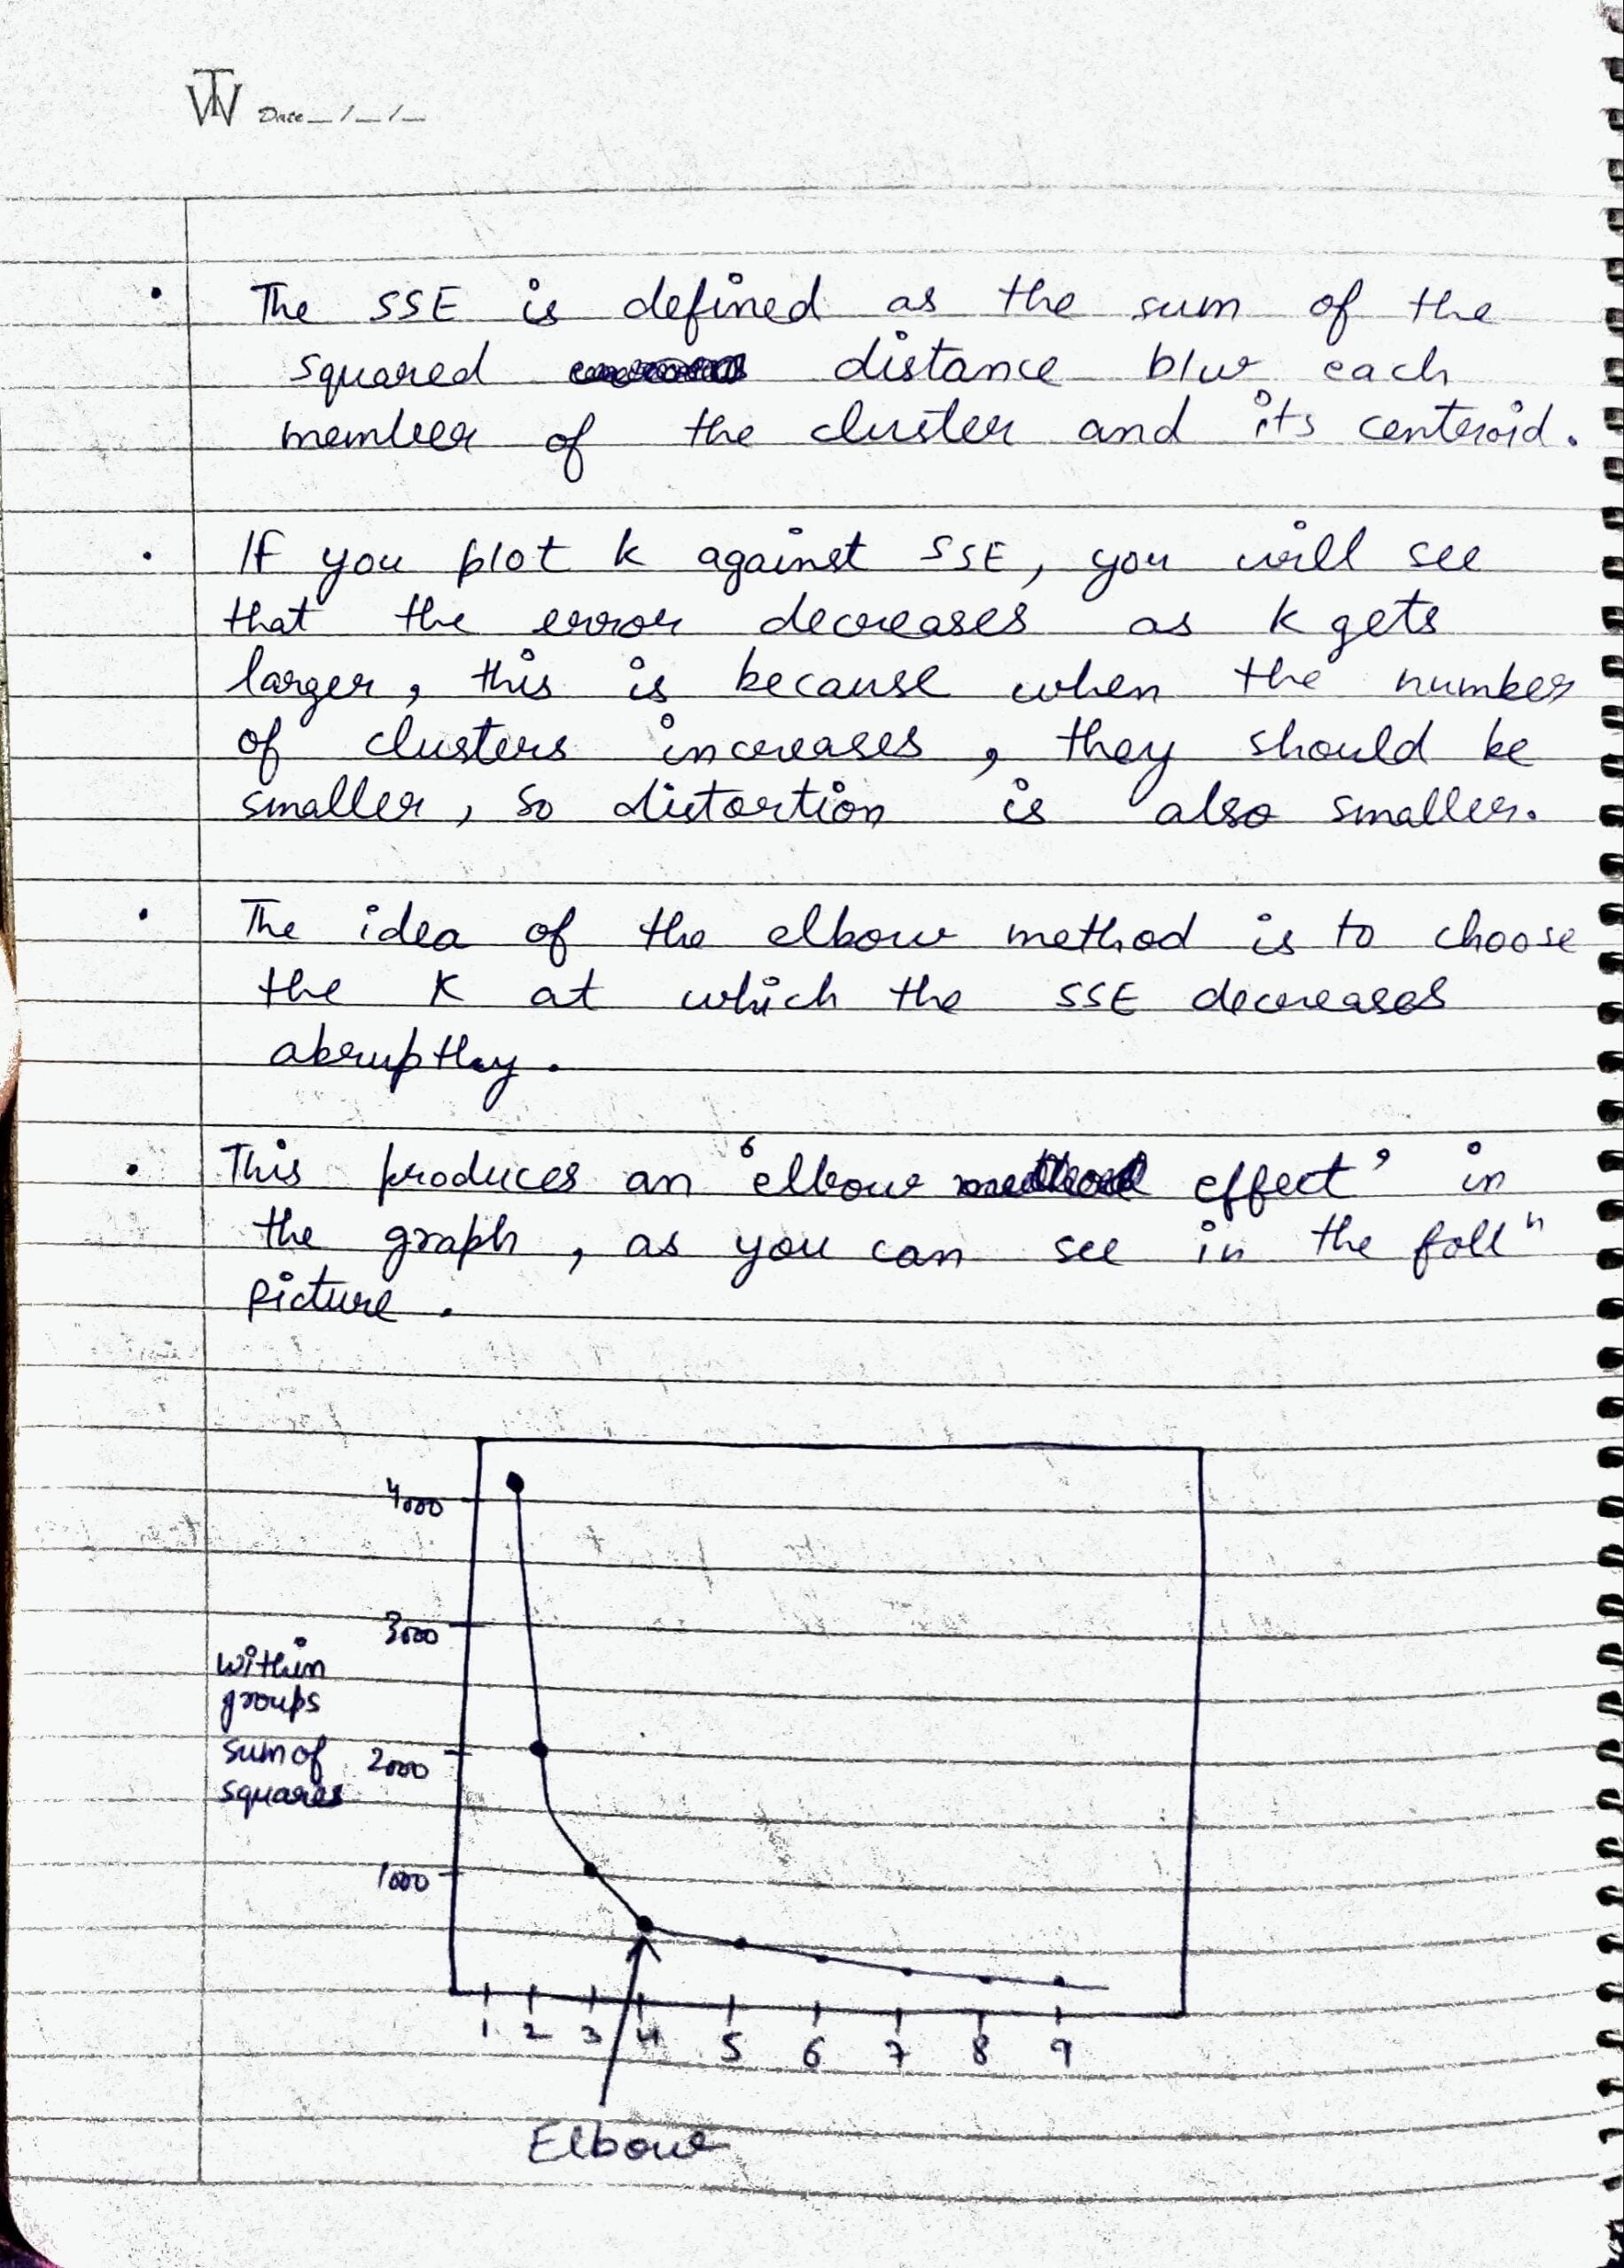 TW Date__/__/__
• The SSE is defined as the sum of the
squared distance b/w each
member of the cluster and its centeroid.
• If you plot k against SSE, you will see
that the error decreases as k gets
larger, this is because when the number
of clusters increases, they should be
smaller, so distortion is also smaller.
• The idea of the elbow method is to choose
the K at which the SSE decreases
abruptley.
• This produces an ‘elbow method effect’ in
the graph, as you can see in the follⁿ
picture.
4000
3000
within
groups
sum of
squares
2000
1000
1 2 3 4 5 6 7 8 9
Elbow